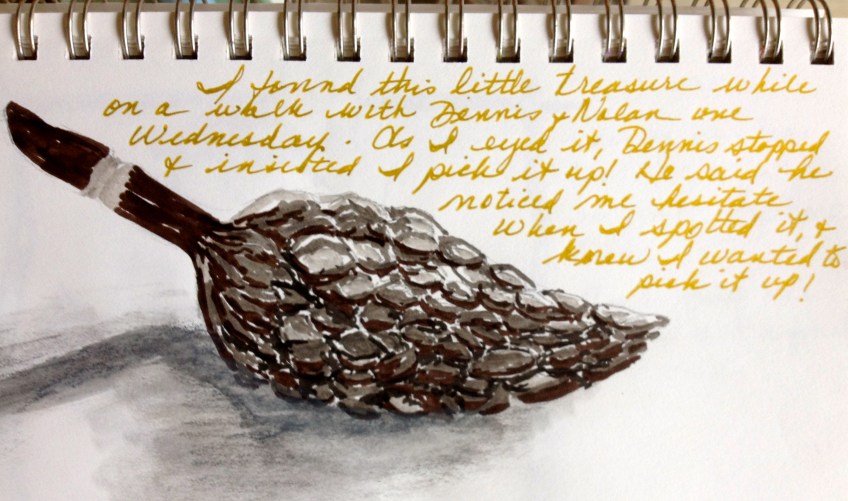 I found this little treasure while
on a walk with Dennis & Nolan one
Wednesday. As I eyed it, Dennis stopped
& insisted I pick it up! He said he
noticed me hesitate
when I spotted it, &
knew I wanted to
pick it up!